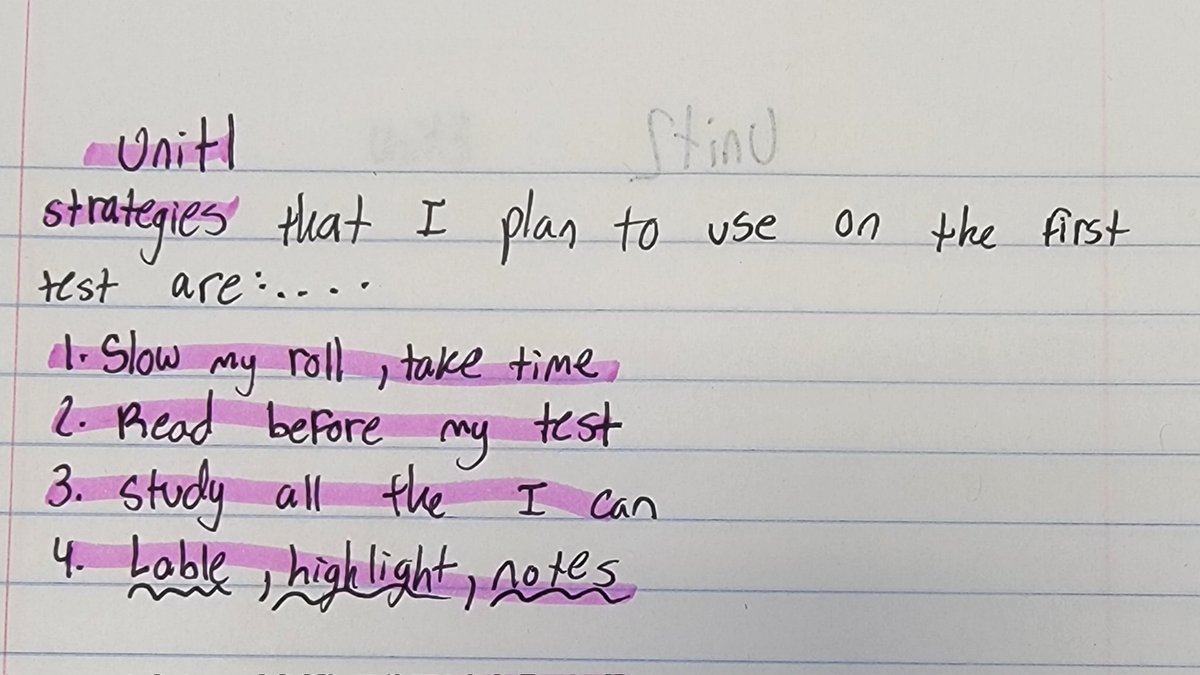 Unit 1
Unit 2
strategies that I plan to use on the first
test are:....
1. Slow my roll, take time
2. Read before my test
3. study all the I can
4. Lable, highlight, notes